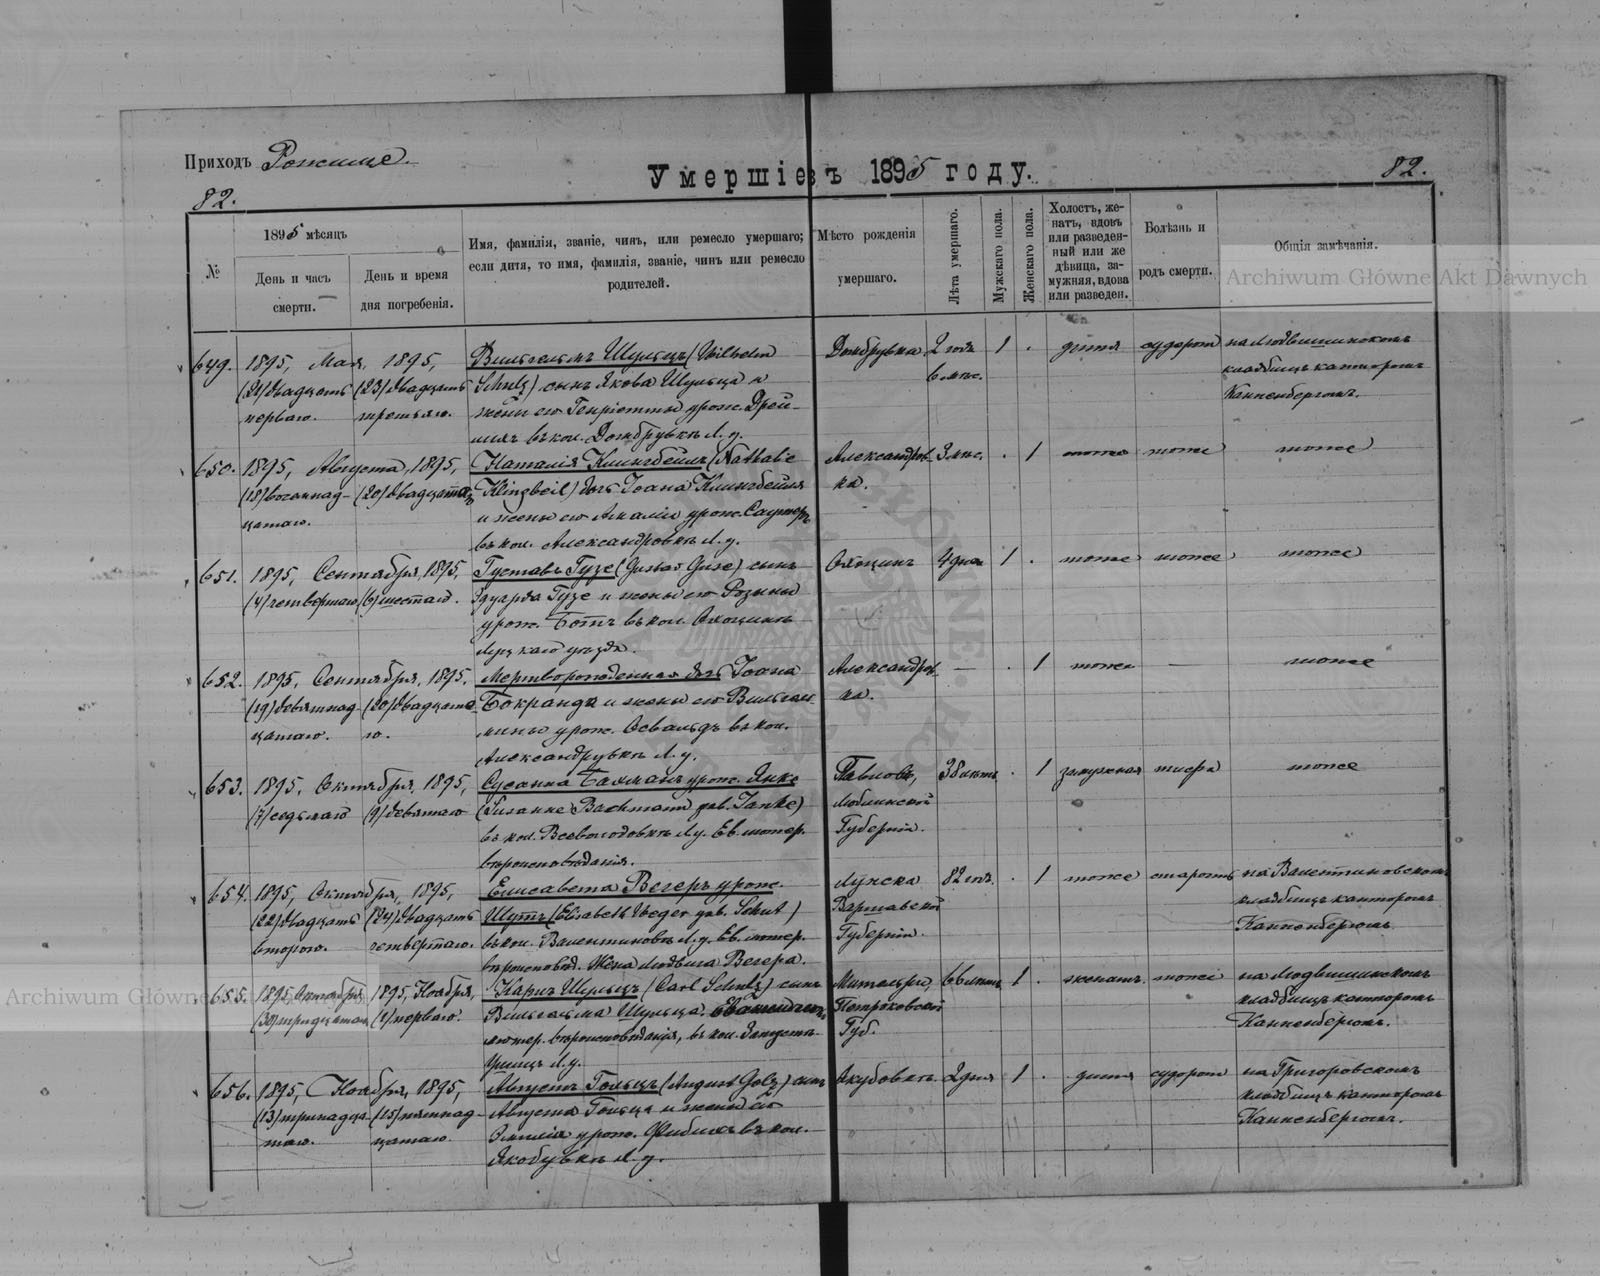 Приходъ Рожище.
Умершіе въ 1895 году.
82.
82.
№
1895 мѣсяцъ
День и часъ смерти.
День и время дня погребенія.
Имя, фамилія, званіе, чинъ, или ремесло умершаго;
если дитя, то имя, фамилія, званіе, чинъ или ремесло
родителей.
Мѣсто рожденія
умершаго.
Лѣта умершаго.
Мужскаго пола.
Женскаго пола.
Холостъ, же-
натъ, вдовъ
или разведен-
ный или же
дѣвица, за-
мужняя, вдова
или разведен.
Болѣзнь и
родъ смерти.
Общія замѣчанія.
Archiwum Główne Akt Dawnych
649. 1895, Мая, 1895, Вильгельмъ Шульцъ (Wilhelm Домбрувка 2 года 1 . дитя судорог на Людвишинскомъ
(21) двадцать (23) двадцать Schulz) сынъ Якова Шульца и 6 мѣс. кладбищѣ канторомъ
перваго. третьяго. жены его Генріетты урож. Дрей- Канненбергомъ.
въ кол. Домбрувкѣ Л. у.
650. 1895, Августа, 1895, Наталія Клингбейль (Nathalie Александров- 3 мѣс. . 1 тоже тоже тоже
(18) восемнад- (20) двадцатаго Klingbeil) дочь Іоана Клингбейля ка.
цатаго. и жены его Амаліи урож. Саутеръ
въ кол. Александровкѣ Л. у.
651. 1895, Сентября, 1895, Густавъ Гузе (Gustav Guse) сынъ 4 дня 1 . тоже тоже тоже
(4) четвертаго (6) шестаго. Эдуарда Гузе и жены его Розины
урож. Ботъ въ кол.
Луцкаго уѣзда.
652. 1895, Сентября, 1895, Мертворожденная дочь Іоана Александров- — . 1 тоже — тоже
(19) девятнад- (20) двадцата- Бокранда и жены его Вильгель- ка.
цатаго. го. мины урож. Освальдъ въ кол.
Александрувкѣ Л. у.
653. 1895, Октября, 1895, Сусанна Бахманъ урож. Янке Павловъ, 38 лѣтъ . 1 замужная тифъ тоже
(7) седьмаго (9) девятаго (Susanne Bachmann geb. Janke) Люблинской
въ кол. Всеволодовкѣ Л. у. Ев. лютер. Губерніи.
вѣроисповѣданія.
654. 1895, Октября, 1895, Елисавета Вегеръ урож. 82 лѣт. . 1 тоже старость на Валентиновскомъ
(22) двадцать (24) двадцать Шутъ (Elisabeth Weger geb. Schut) Варшавской кладбищѣ канторомъ
второго. четвертаго. въ кол. Валентиновкѣ Л. у. Ев. лютер. Губерніи. Канненбергомъ.
вѣроисповѣд. Жена Людвига Вегера.
655. 1895 Октября 1895, Ноября, Карлъ Шульцъ (Carl Schulz) сынъ 66 лѣтъ 1 . женатъ тоже на Людвишинскомъ
(30) тридцатаго (1) перваго. Вильгельма Шульца Петроковской кладбищѣ канторомъ
лютер. вѣроисповѣданія, въ кол. Губ. Канненбергомъ.
Л. у.
656. 1895, Ноября, 1895, Августъ Гольцъ (August Golz) сынъ Якубовкѣ 2 дня 1 . дитя судорог на Григоровскомъ
(13) тринадца- (15) пятнад- Августа Гольца и жены его кладбищѣ канторомъ
таго. цатаго. Эмилія урож. въ кол. Канненбергомъ.
Якобувкѣ Л. у.
Archiwum Główne